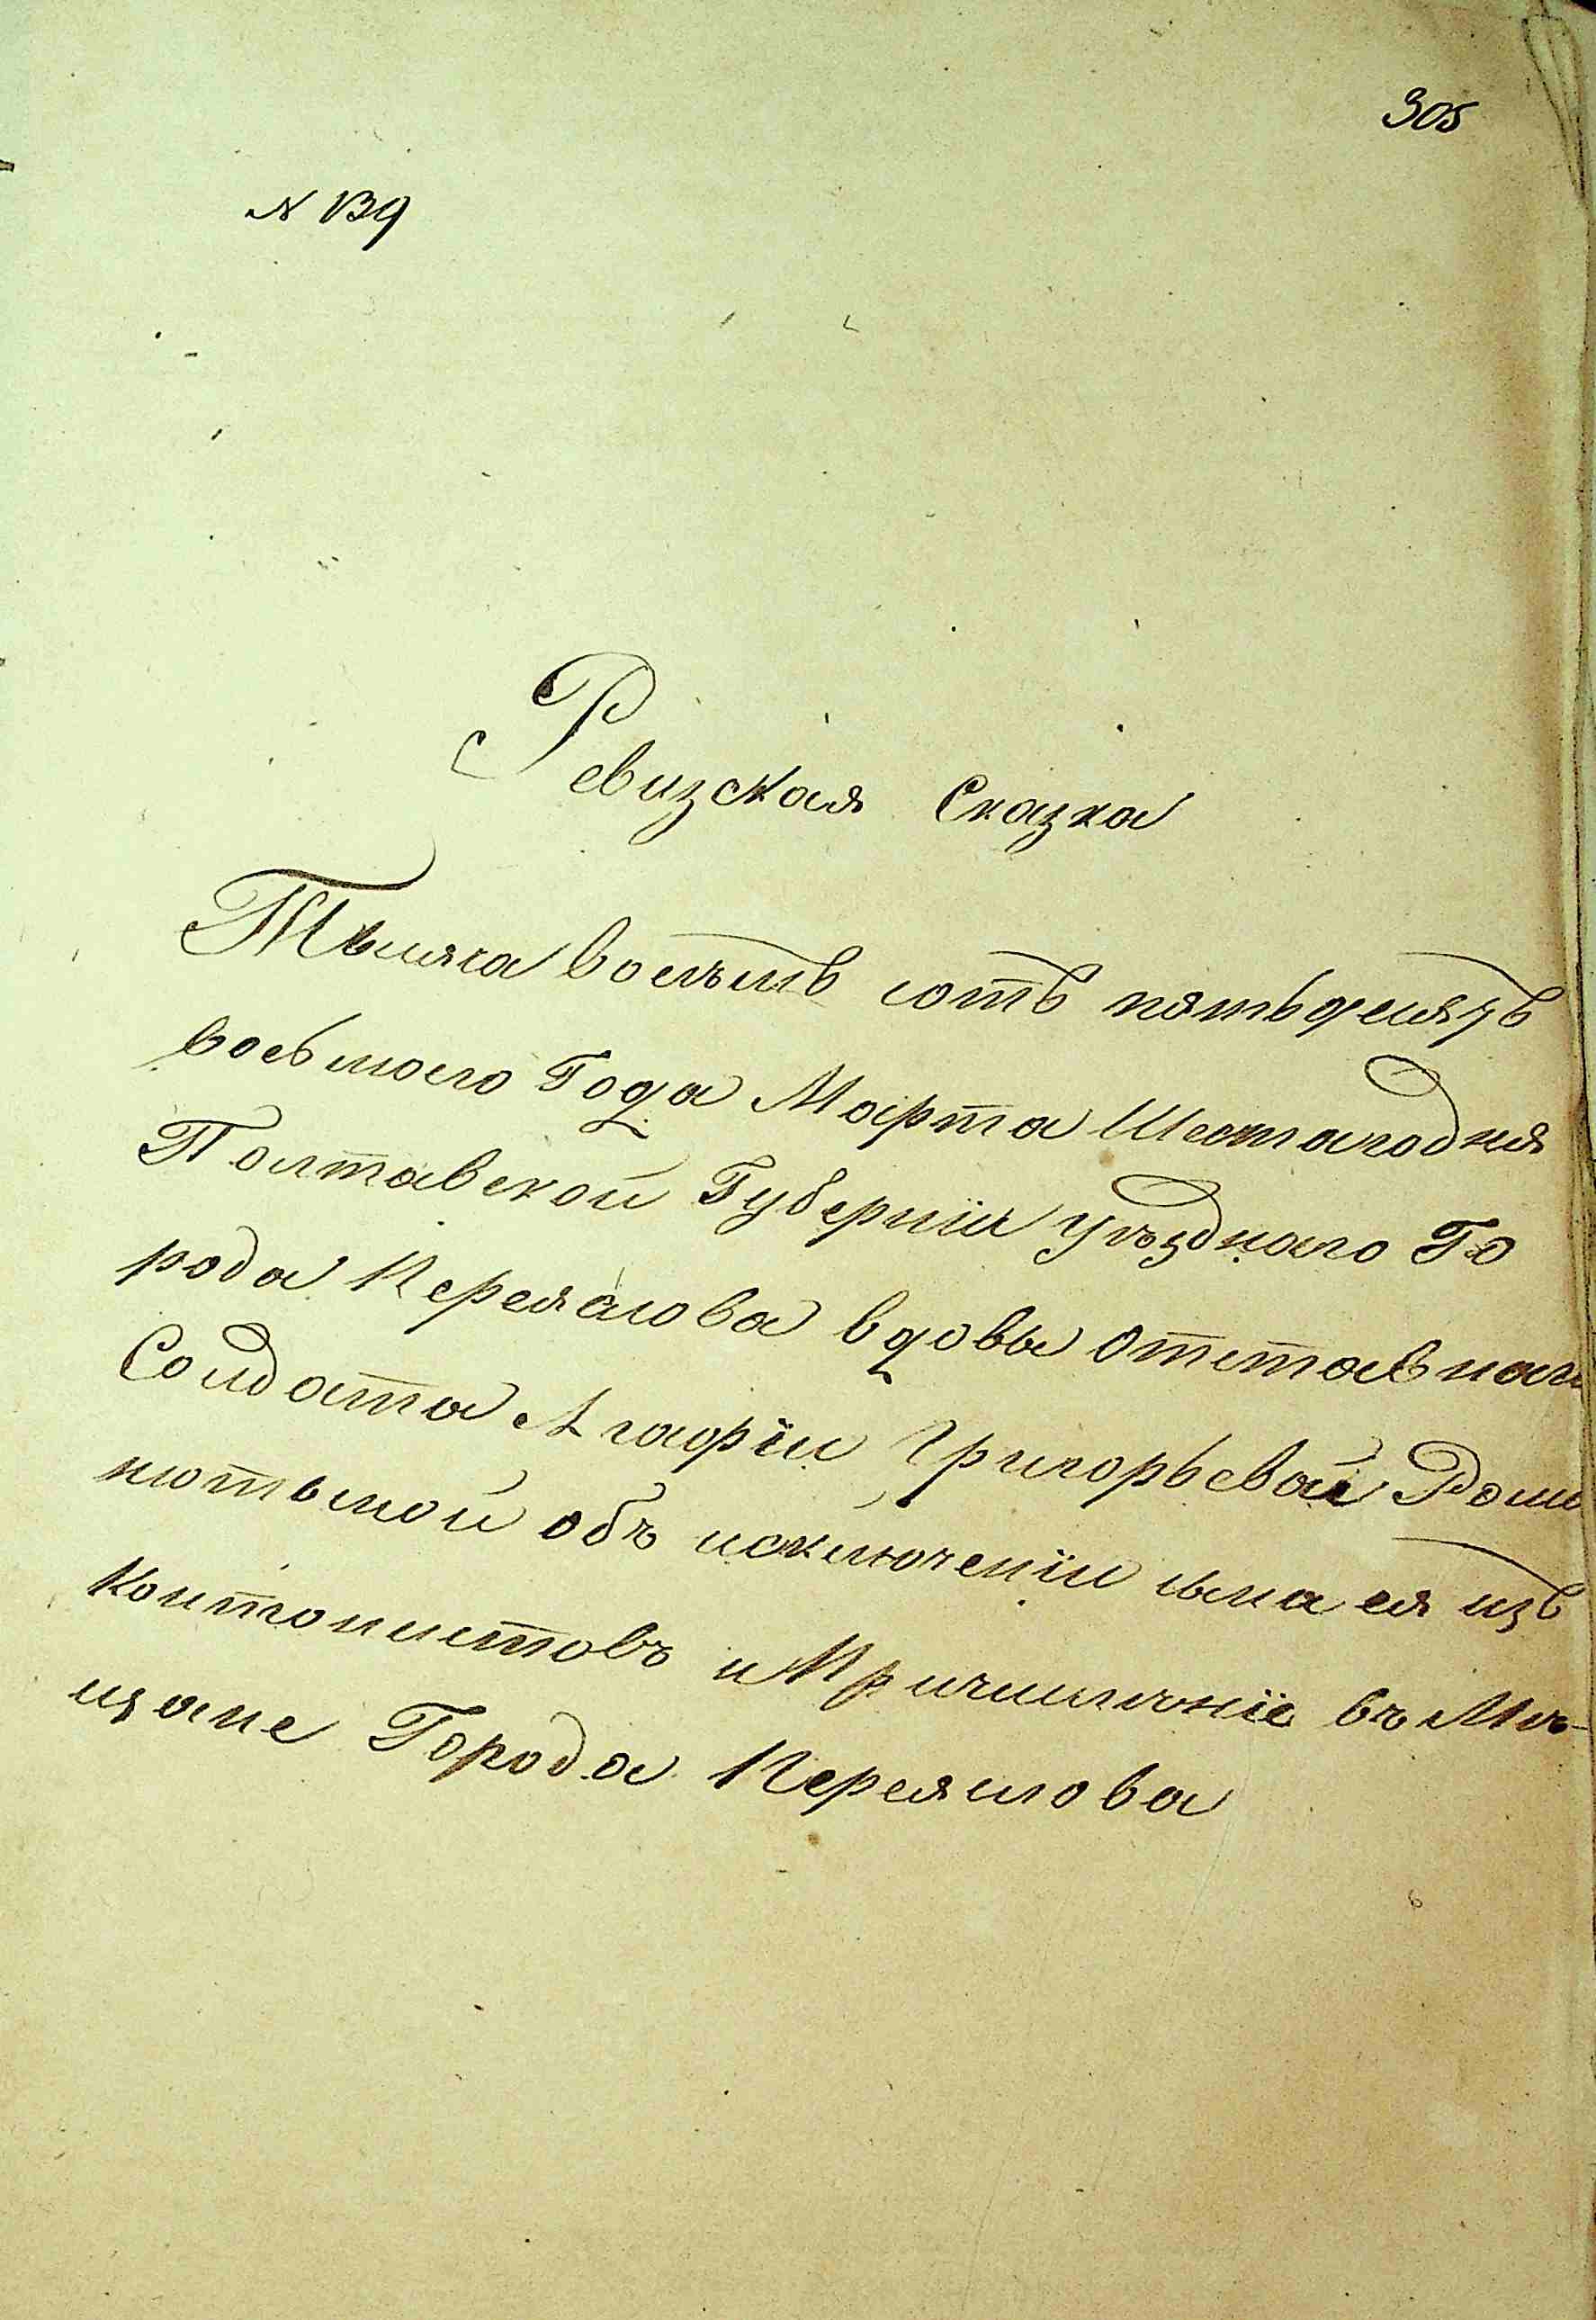 305
№ 139
Ревизская Сказка
Тысяча восемь сотъ пятьдесятъ
восьмого Года Марта Шестагодня
Полтавской Губерніи уѣзднаго Го
рода Переяслова вдовы отставнаго
Солдата Агафіи Григорьевой
объ исключеніи сына ея изъ
Кантонистовъ и Причисленіе въ Мѣ-
щане Города Переяслова